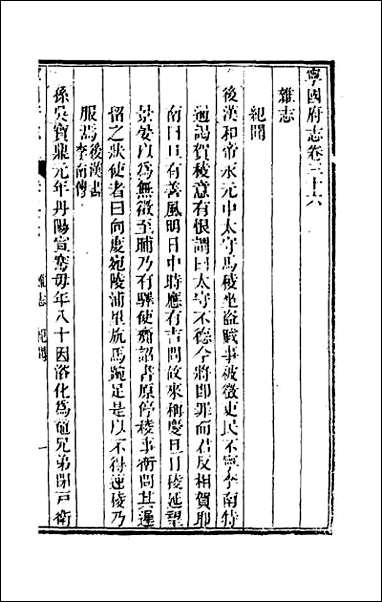 寧國府志卷三十六
雜志
紀聞
後漢和帝永元中太守馬稜坐盜賊事被徵吏民不寧李南特
通謁賀稜意有恨謂曰太守不德今將即罪而君反相賀耶
南曰旦有善風明日中時應有吉問故來稱慶旦日稜延望
景晏以為無徵至晡乃有驛使齎詔書原停稜事南問其遲
留之狀使者曰向度宛陵浦里㡃馬踠足是以不得速稜乃
服焉後漢書李南傳
孫吳寶鼎元年丹陽宣騫母年八十因浴化為黿兄弟閉戶衛
雜志 紀聞
一